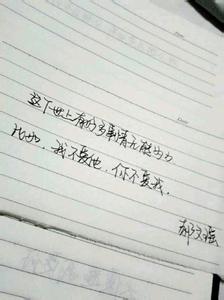 这个世上有好多事情无能为力
比如，我不爱他，你不爱我。
郝文强